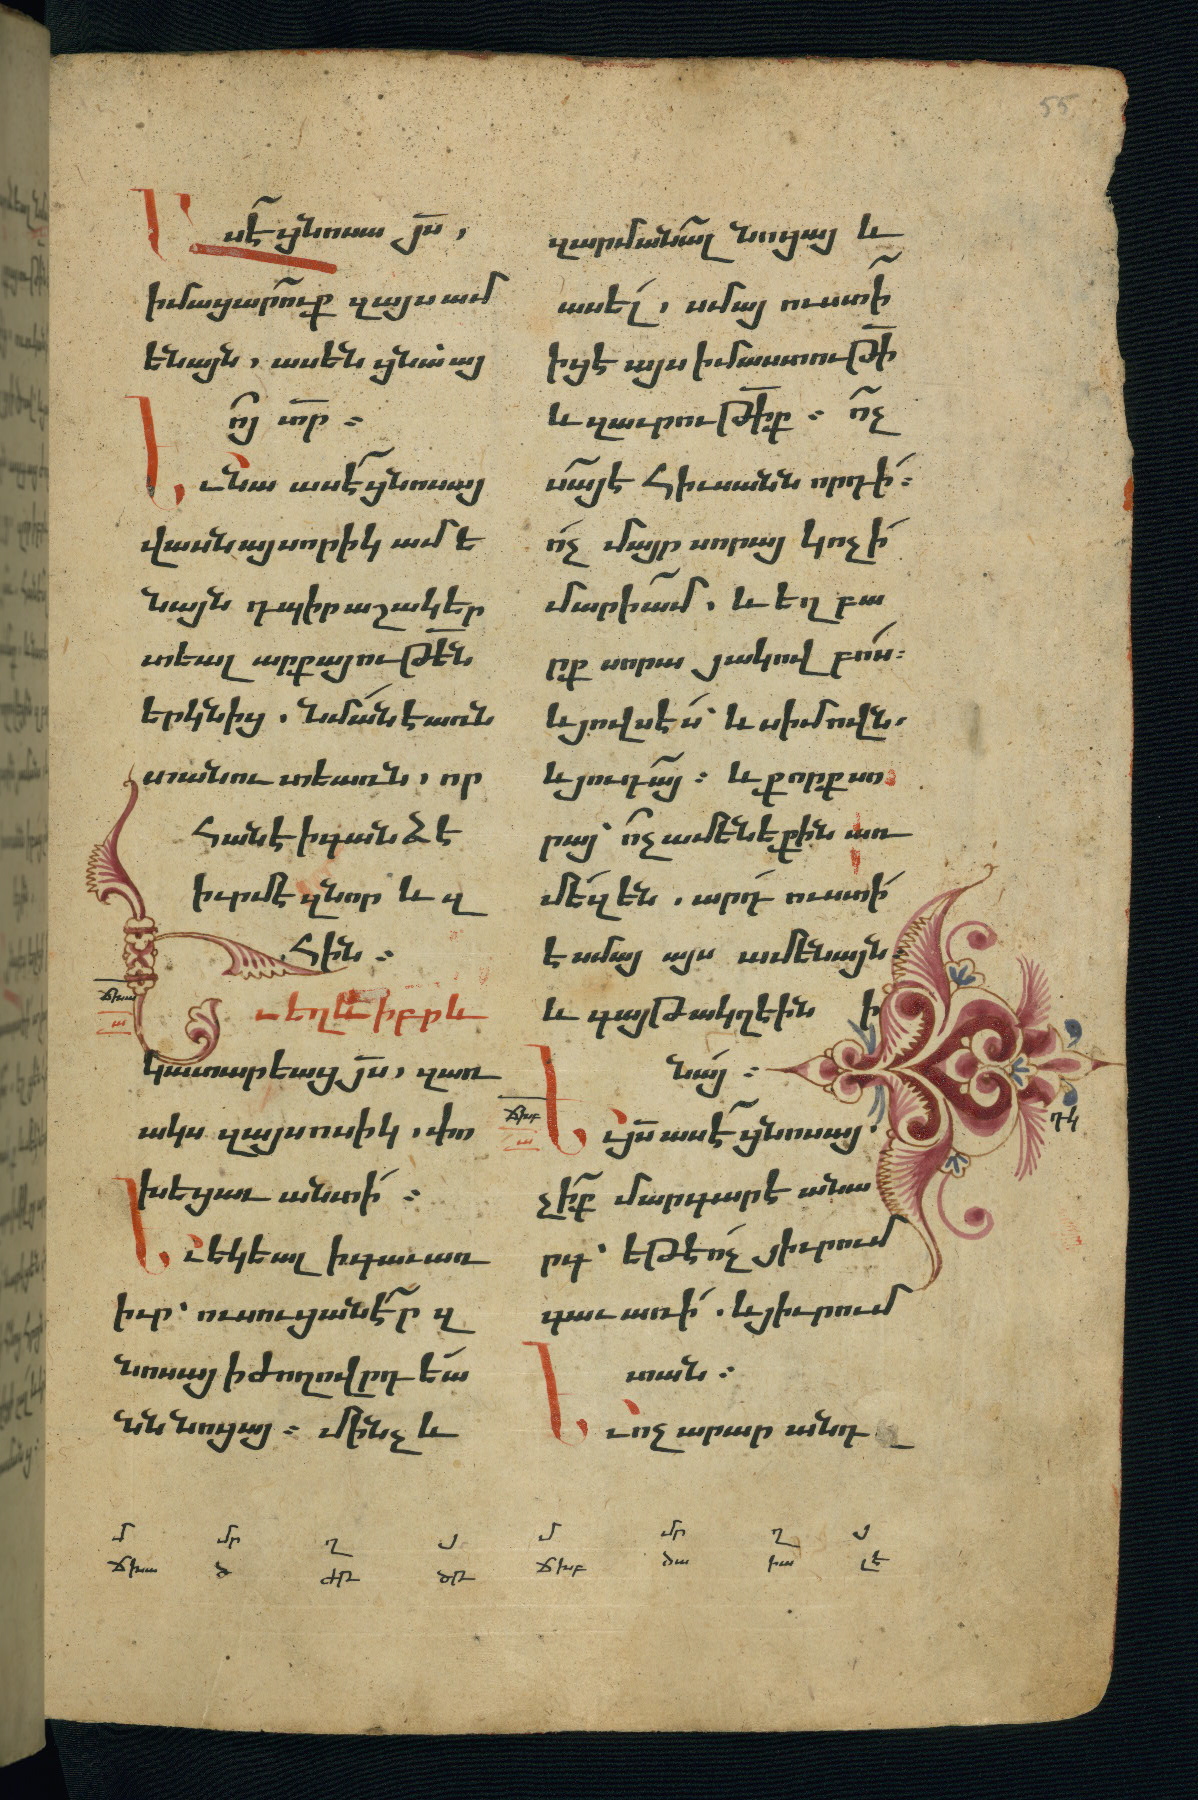 55
Ասէ ցնոսա յս,
իմացարուք զայս ամ
ենայն, ասեն ցնա՝ այ
ոյ տր ։
Եւ նա ասէ ցնոսայ
վասն այսորիկ ամե
նայն դպիր աշակեր
տեալ արքայութեն
երկնից . նման է առն
տանուտեառն, որ
հանէ ի գանձէ
իւրմէ զնոր և զ
հին ։
ճխա
Եւ եղև իբրև
կատարեաց յս, զառ
ակս զայսոսիկ, փո
խեցաւ անտի ։
Եւ եկեալ ի գաւառ
իւր՝ ուսուցանէր զ
նոսայ ի ժողովրդեա
նն նոցայ ։ մինչ և
զարմանալ նոցայ և
ասել, սմայ ուստի
իցէ այս իմաստութի
և զաւրութիք ։ ոչ
սայ է հիւսանն որդի ։
ոչ մայր սորայ կոչի
մարիամ . և եղբա
րք սորա յակովբոս ։
և յովսէս՝ և սիմովն.
և յուդայ ։ և քորք սո
րայ՝ ոչ ամենեքին առ
մեզ են . արդ ուստի
է սմայ այս ամենայն
և գայթակղէին ի
նայ ։
ճխբ
Եւ յս ասէ ցնոսայ՝
դկ
չիք մարգարէ անա
րգ՝ եթէ ոչ յիւրում
գաւառի . և յիւրում
տան ։
Եւ ոչ արար անդ
մ մր ղ յ մ մր ղ յ
ճխա ծ ժը ծը ճխբ ծա իա լէ